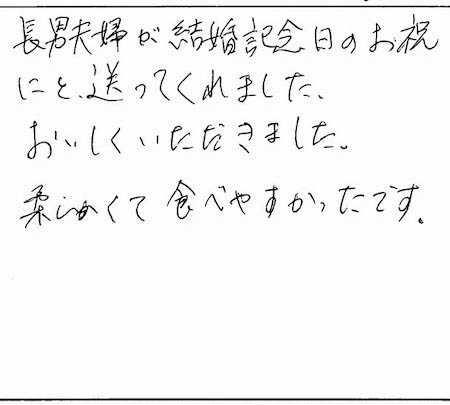 長男夫婦が結婚記念日のお祝
にと、送ってくれました、
おいしくいただきました。
柔らかくて食べやすかったです。